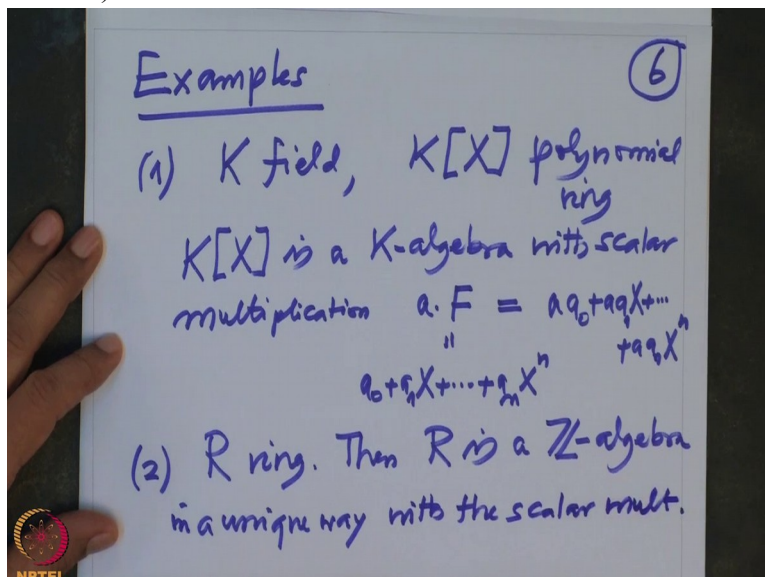 Examples
6
(1) K field, K[X] polynomial
ring
K[X] is a K-algebra with scalar
multiplication a. F = aa₀+aa₁X+...
+aaₙXⁿ
"
a₀+a₁X+...+aₙXⁿ
(2) R ring. Then R is a ℤ-algebra
in a unique way with the scalar mult.
NPTEL